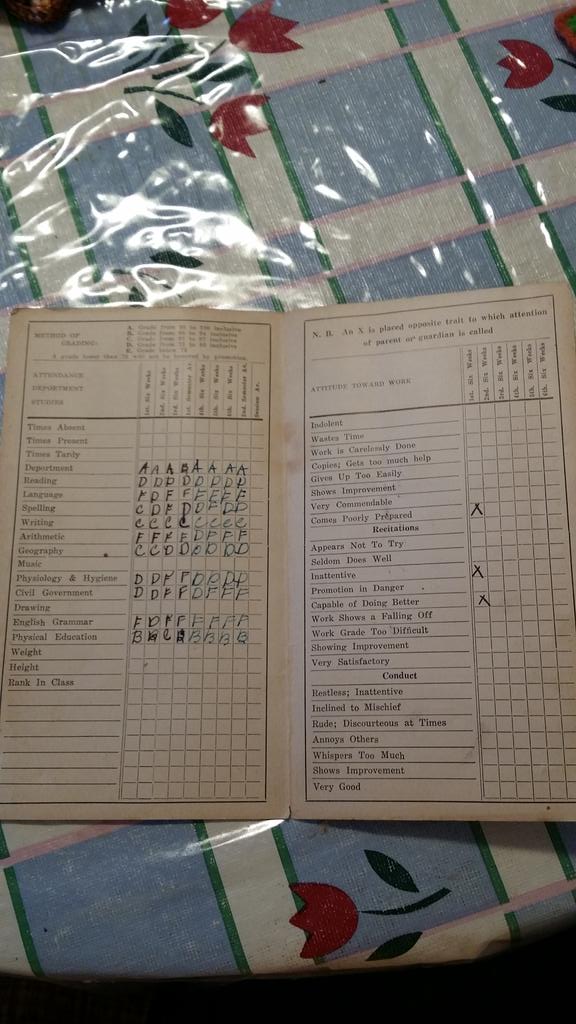 METHOD OF GRADING:
A. Grade from 95 to 100 inclusive
B. Grade from 88 to 94 inclusive
E. Grade below 75
ATTENDANCE
DEPARTMENT
STUDIES
1st. Six Weeks
2nd. Six Weeks
3rd. Six Weeks
1st Semester Av.
4th. Six Weeks
5th. Six Weeks
6th. Six Weeks
2nd. Semester Av.
Session Av.
Times Absent
Times Present
Times Tardy
Deportment A A A A A A A A
Reading D D D D D D D D
Language F D F F F F F F
Spelling C D F D D F D D
Writing C C C C C C C C
Arithmetic F F F F D F F F
Geography C C D D D D D D
Music
Physiology & Hygiene D D F F D D D D
Civil Government D D F F D F F F
Drawing
English Grammar F D F F F F F F
Physical Education B B C B B B B B
Weight
Height
Rank In Class
N. B. An X is placed opposite trait to which attention
of parent or guardian is called
ATTITUDE TOWARD WORK
1st. Six Weeks
2nd. Six Weeks
3rd. Six Weeks
4th. Six Weeks
5th. Six Weeks
6th. Six Weeks
Indolent
Wastes Time
Work is Carelessly Done
Copies; Gets too much help
Gives Up Too Easily
Shows Improvement
Very Commendable
Comes Poorly Prepared X
Recitations
Appears Not To Try
Seldom Does Well
Inattentive X
Promotion in Danger
Capable of Doing Better X
Work Shows a Falling Off
Work Grade Too Difficult
Showing Improvement
Very Satisfactory
Conduct
Restless; Inattentive
Inclined to Mischief
Rude; Discourteous at Times
Annoys Others
Whispers Too Much
Shows Improvement
Very Good